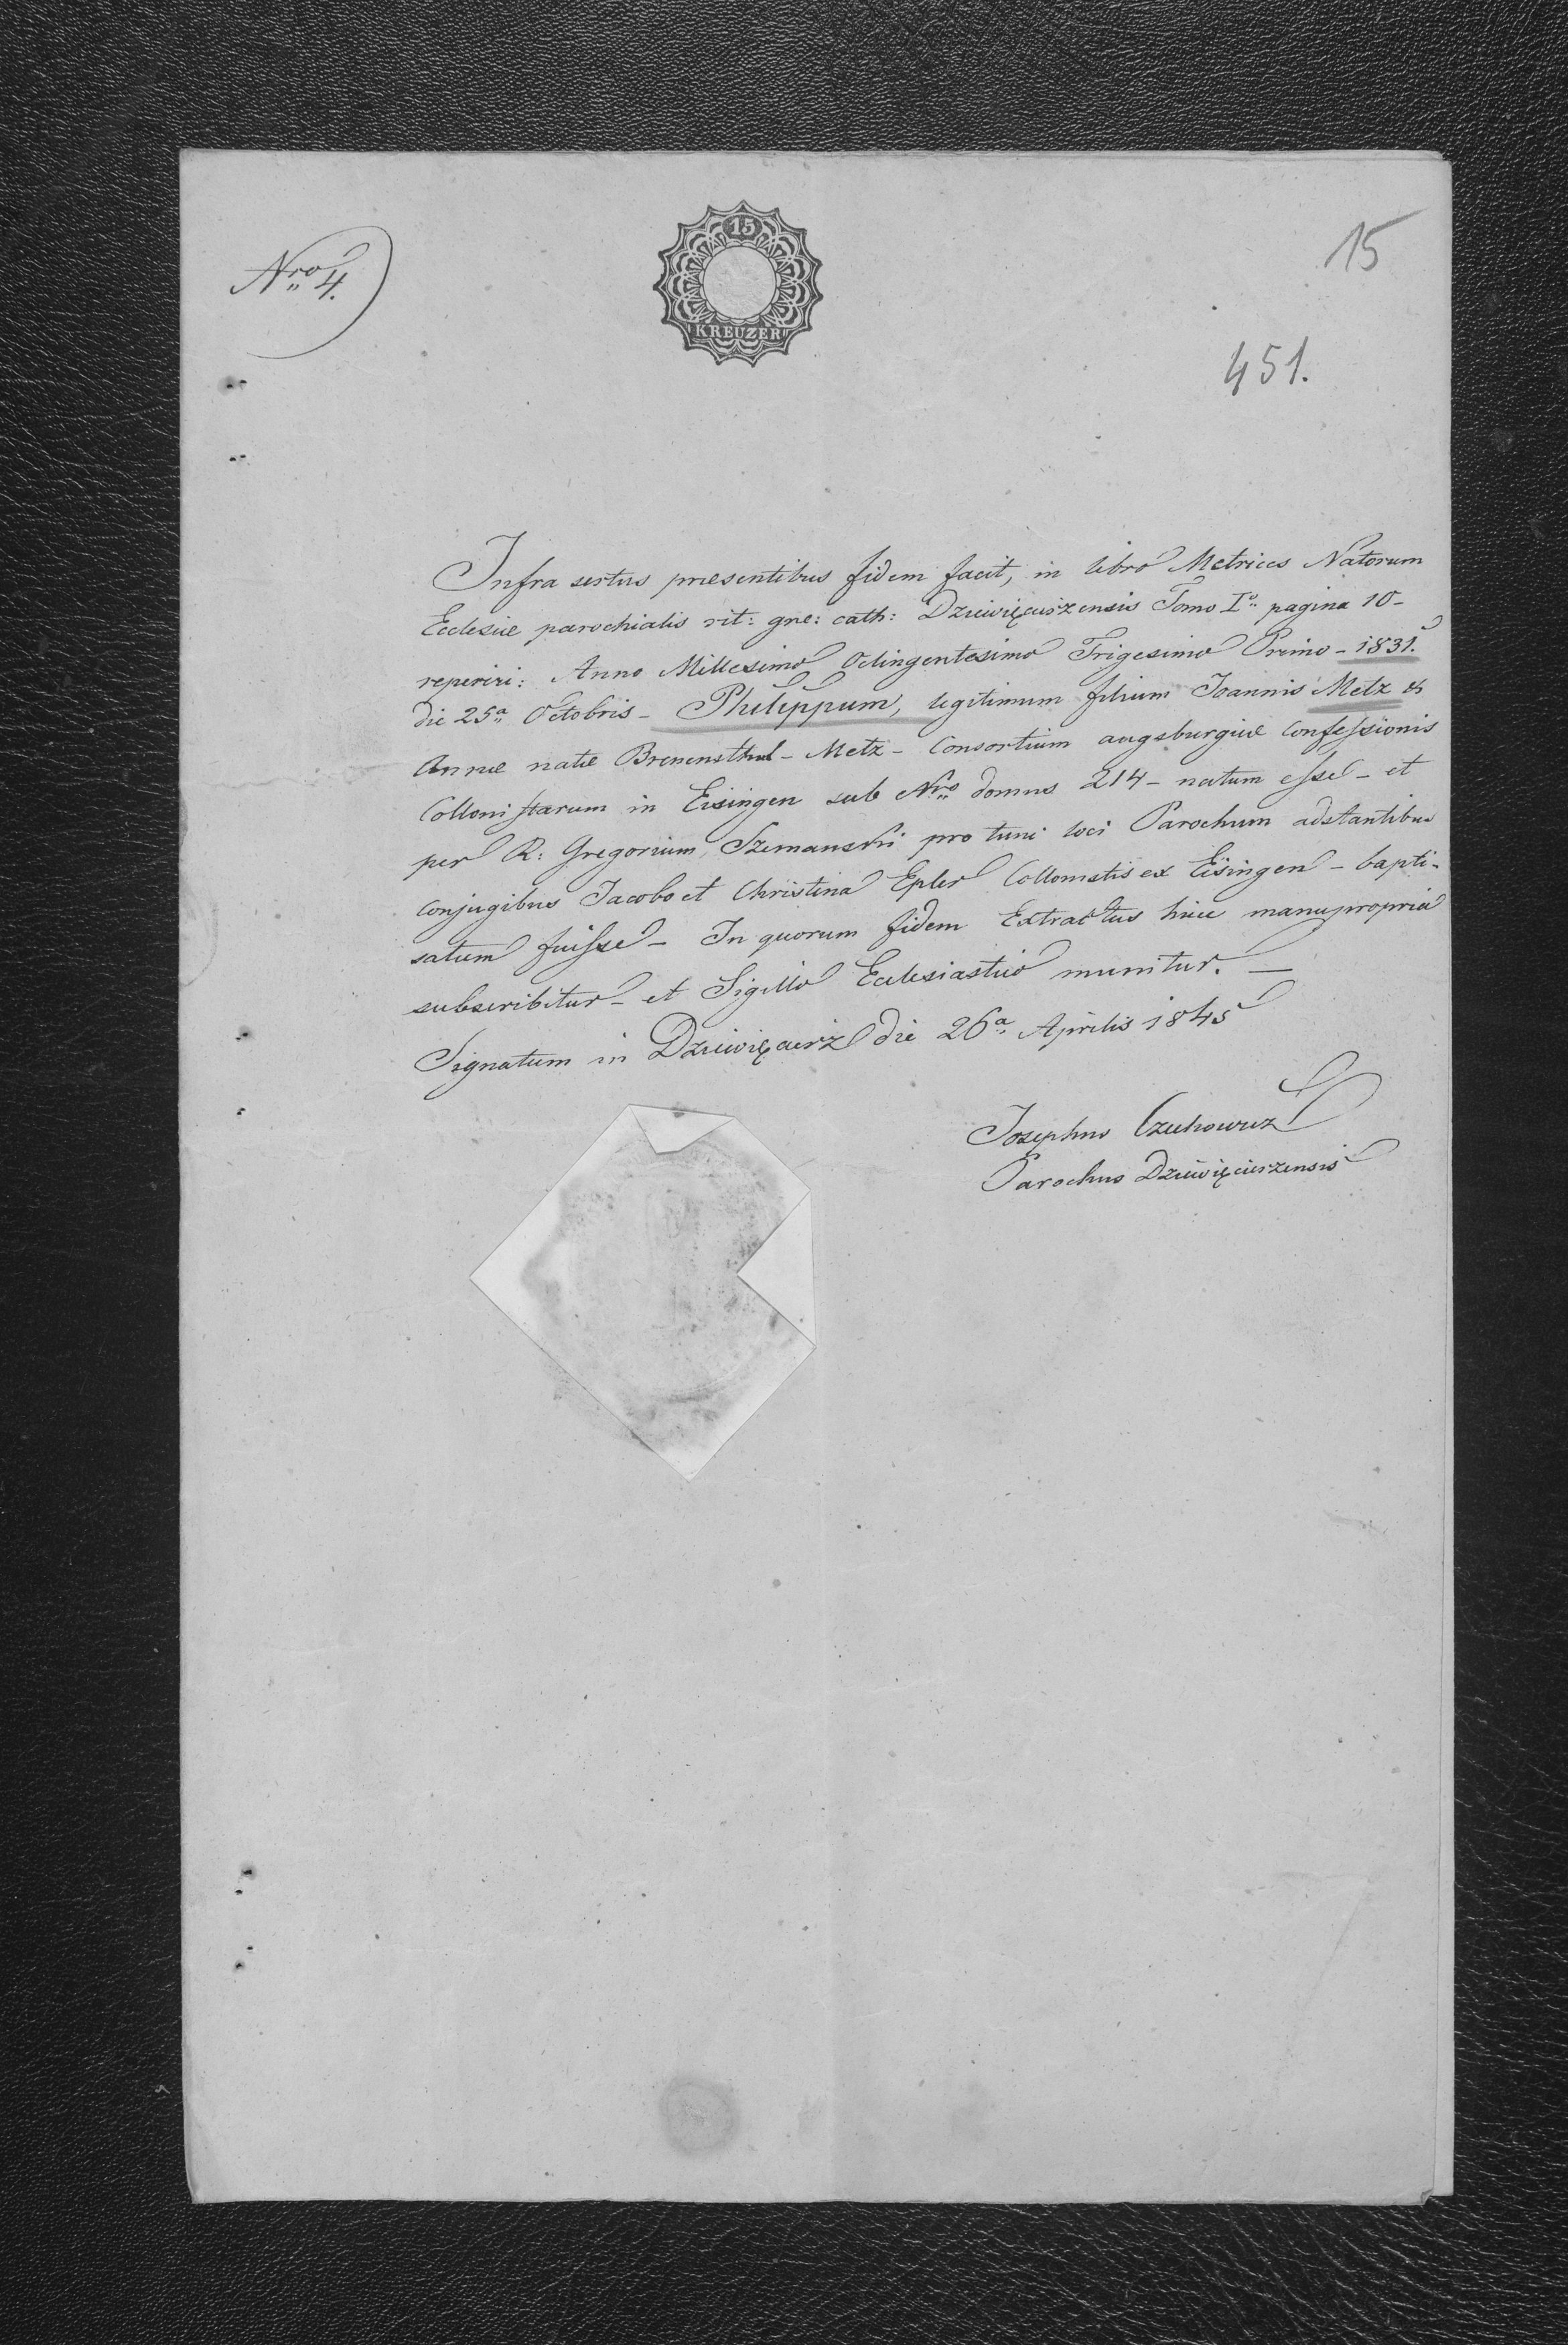 Nro 4.
15
KREUZER
15
451.
Infra sertus præsentibus fidem facit, in libro Metrices Natorum
Ecclesiæ parochialis rit: gre: cath: Dziewięcierzensis Tomo Io pagina 10-
reperiri: Anno Millesimo Octingentesimo Trigesimo Primo - 1831.
die 25a Octobris - Philippum, legitimum filium Joannis Metz &
Annæ natæ - Metz - Consortium augsburgiæ Confessionis
Collonistarum in Eisingen sub Nro domus 214 - natum esse - et
per R: Gregorium Szemanski pro tunc loci Parochum adstantibus
conjugibus Jacobo et Christina Epler Collonistis ex Eisingen - bapti-
satum fuisse - In quorum fidem Extractus hicce manupropria
subscribitur - et Sigillo Ecclesiastico munitur. -
Signatum in Dziewięcierz die 26a Aprilis 1845
Josephus Czechowicz
Parochus Dziewięcierzensis